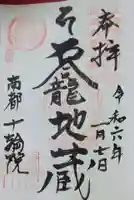 奉拝
令和六年
一月十八日
石龍地蔵
南都十輪院